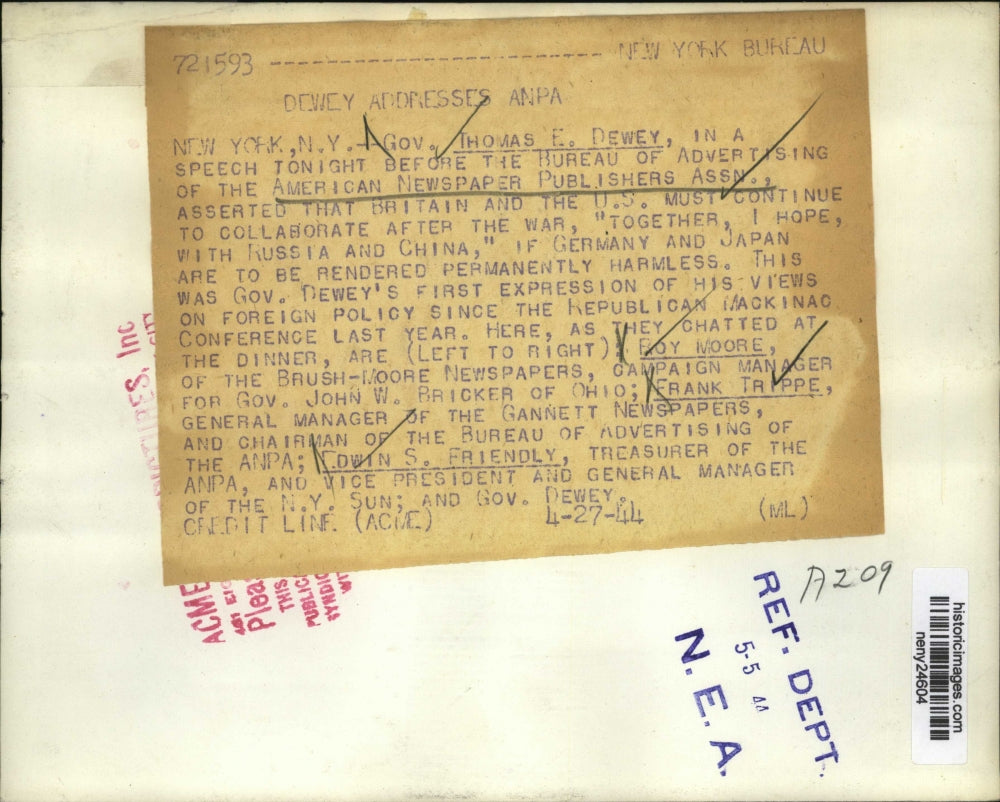 721593 ------------------------------ NEW YORK BUREAU
DEWEY ADDRESSES ANPA
NEW YORK, N.Y.--GOV. THOMAS E. DEWEY, IN A
SPEECH TONIGHT BEFORE THE BUREAU OF ADVERTISING
OF THE AMERICAN NEWSPAPER PUBLISHERS ASSN.,
ASSERTED THAT BRITAIN AND THE U.S. MUST CONTINUE
TO COLLABORATE AFTER THE WAR, "TOGETHER, I HOPE,
WITH RUSSIA AND CHINA," IF GERMANY AND JAPAN
ARE TO BE RENDERED PERMANENTLY HARMLESS. THIS
WAS GOV. DEWEY'S FIRST EXPRESSION OF HIS VIEWS
ON FOREIGN POLICY SINCE THE REPUBLICAN MACKINAC
CONFERENCE LAST YEAR. HERE, AS THEY CHATTED AT
THE DINNER, ARE (LEFT TO RIGHT) ROY MOORE,
OF THE BRUSH-MOORE NEWSPAPERS, CAMPAIGN MANAGER
FOR GOV. JOHN W. BRICKER OF OHIO; FRANK TRIPPE,
GENERAL MANAGER OF THE GANNETT NEWSPAPERS,
AND CHAIRMAN OF THE BUREAU OF ADVERTISING OF
THE ANPA; EDWIN S. FRIENDLY, TREASURER OF THE
ANPA, AND VICE PRESIDENT AND GENERAL MANAGER
OF THE N.Y. SUN; AND GOV. DEWEY.
CREDIT LINE (ACME) 4-27-44 (ML)
Inc
ACME
Plea
THIS
PUBLIC
SYNDIC
A209
REF. DEPT.
5-5 44
N.E.A.
historicimages.com
neny24604